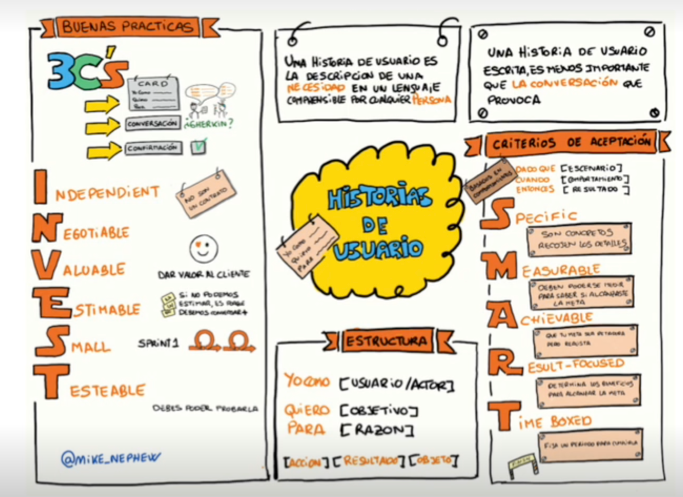 BUENAS PRACTICAS
3C's
CARD
CONVERSACIÓN
¿GHERKIN?
CONFIRMACIÓN
INDEPENDIENT
NO SON
UN CONTRATO
NEGOTIABLE
VALUABLE
DAR VALOR AL CLIENTE
ESTIMABLE
SI NO PODEMOS
ESTIMAR, ES PORQUE
DEBEMOS CONVERSAR+
SMALL
SPRINT1
TESTEABLE
DEBES PODER PROBARLA
@MIKE_NEPHEW
UNA HISTORIA DE USUARIO ES
LA DESCRIPCION DE UNA
NECESIDAD EN UN LENGUAJE
COMPRENSIBLE POR CUALQUIER PERSONA
HISTORIAS
DE
USUARIO
YO COMO
QUIERO
PARA
ESTRUCTURA
YO COMO [USUARIO/ACTOR]
QUIERO [OBJETIVO]
PARA [RAZON]
[ACCION] [RESULTADO] [OBJETO]
UNA HISTORIA DE USUARIO
ESCRITA, ES MENOS IMPORTANTE
QUE LA CONVERSACIÓN QUE
PROVOCA
CRITERIOS DE ACEPTACIÓN
BASADOS EN
COMPORTAMIENTOS
DADO QUE [ESCENARIO]
CUANDO [COMPORTAMIENTO]
ENTONCES [RESULTADO]
SPECIFIC
SON CONCRETOS
RECOGEN LOS DETALLES
MEASURABLE
DEBEN PODERSE MEDIR
PARA SABER SI ALCANZASTE
LA META
ACHIEVABLE
QUE TU META SEA RETADORA
PERO REALISTA
RESULT-FOCUSED
DETERMINA LOS BENEFICIOS
PARA ALCANZAR LA META
TIME BOXED
FIJA UN PERIODO PARA CUMPLIRLA